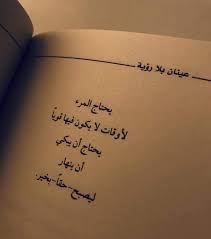 عينان بلا رؤية
يحتاج المرء
لأوقات لا يكون فيها قوياً
يحتاج أن يبكي
أن ينهار
ليصبح -حقاً- بخير.